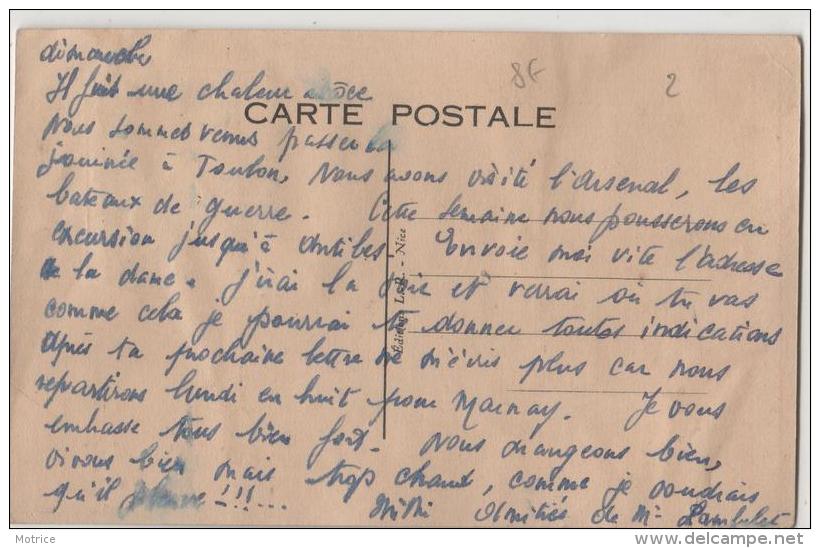 dimanche
8F
2
Il fait une chaleur atroce
CARTE POSTALE
Nous sommes venus passer la
journée à Toulon, Nous avons visité l'Arsenal, les
bateaux de guerre. Cette semaine nous pousserons en
excursion jusqu'à Antibes. Envoie moi vite l'adresse
de la dame. J'irai la voir et verrai où tu vas
comme cela je pourrai te donner toutes indications
Après ta prochaine lettre ne m'écris plus car nous
repartirons lundi en huit pour Marnay. Je vous
embrasse tous bien fort. Nous mangeons bien,
vivons bien mais trop chaud, comme je voudrais
qu'il pleuve !!!...
Mimi Amitiés de Mr
Editions - Nice
Motrice
delcampe.net